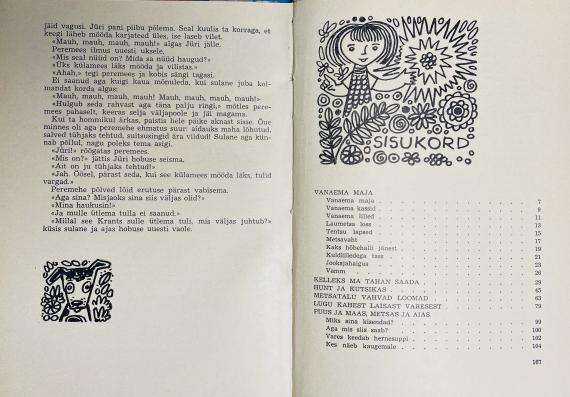 jäid vagusi. Jüri pani piibu põlema. Seal kuulis ta korraga, et
keegi läheb mööda karjateed üles, ise laseb vilet.
«Mauh, mauh, mauh, mauh!» algas Jüri jälle.
Peremees ilmus uuesti uksele.
«Mis seal nüüd on? Mida sa nüüd haugud?»
«Üks külamees läks mööda ja vilistas.»
«Ahah,» tegi peremees ja kobis sängi tagasi.
Ei saanud aga kuigi kaua mõnuleda, kui sulane juba kol-
mandat korda algas:
«Mauh, mauh, mauh, mauh! Mauh, mauh, mauh, mauh!»
«Hulgub seda rahvast aga täna palju ringi,» mõtles pere-
mees pahaselt, keeras selja väljapoole ja jäi magama.
Kui ta hommikul ärkas, paistis hele päike aknast sisse. Õue
minnes oli aga peremehe ehmatus suur: aidauks maha lõhutud,
salved tühjaks tehtud, suitsusingid ära viidud! Sulane aga kün-
nab põllul, nagu poleks tema asigi.
«Jüri!» röögatas peremees.
«Mis on?» jättis Jüri hobuse seisma.
«Ait on ju tühjaks tehtud!»
«Jah. Öösel, pärast seda, kui see külamees mööda läks, tulid
vargad.»
Peremehe põlved lõid erutuse pärast vabisema.
«Aga sina? Misjaoks sina siis väljas olid?»
«Mina haukusin!»
«Ja mulle ütlema tulla ei saanud.»
«Millal see Krants sulle ütlema tuli, mis väljas juhtub?»
küsis sulane ja ajas hobuse uuesti vaole.
SISUKORD
VANAEMA MAJA
Vanaema maja 7
Vanaema kassid 9
Vanaema lilled 11
Laumetsa loss 13
Tentsu lapsed 15
Metsavaht 17
Kaks hõbehalli jänest 19
Kuldlilledega tass 21
Jooksjahaigus 23
Vamm 26
KELLEKS MA TAHAN SAADA 29
HUNT JA KUTSIKAS 45
METSATALU VAHVAD LOOMAD 63
LUGU KAHEST LAISAST VARESEST 79
PUUS JA MAAS, METSAS JA AIAS
Miks sina kisendad? 99
Aga mis siis saab? 100
Vares keedab hernesuppi 102
Kes näeb kaugemale 104
167